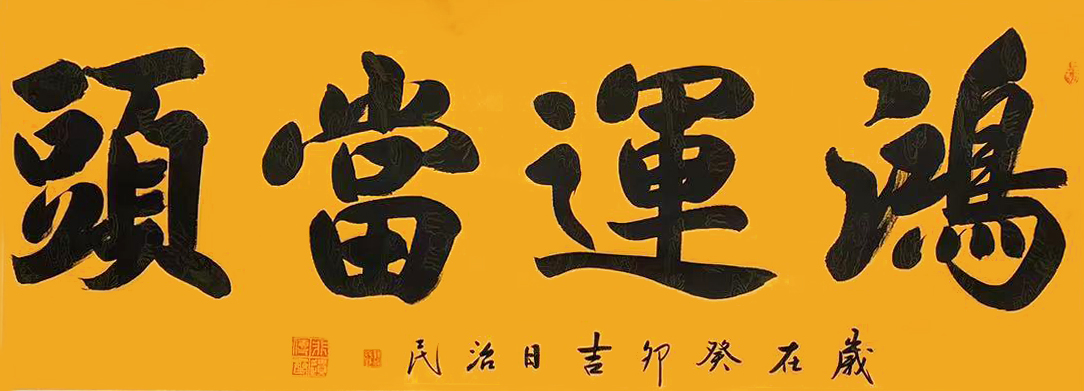 鴻運當頭
歲在癸卯吉日治民